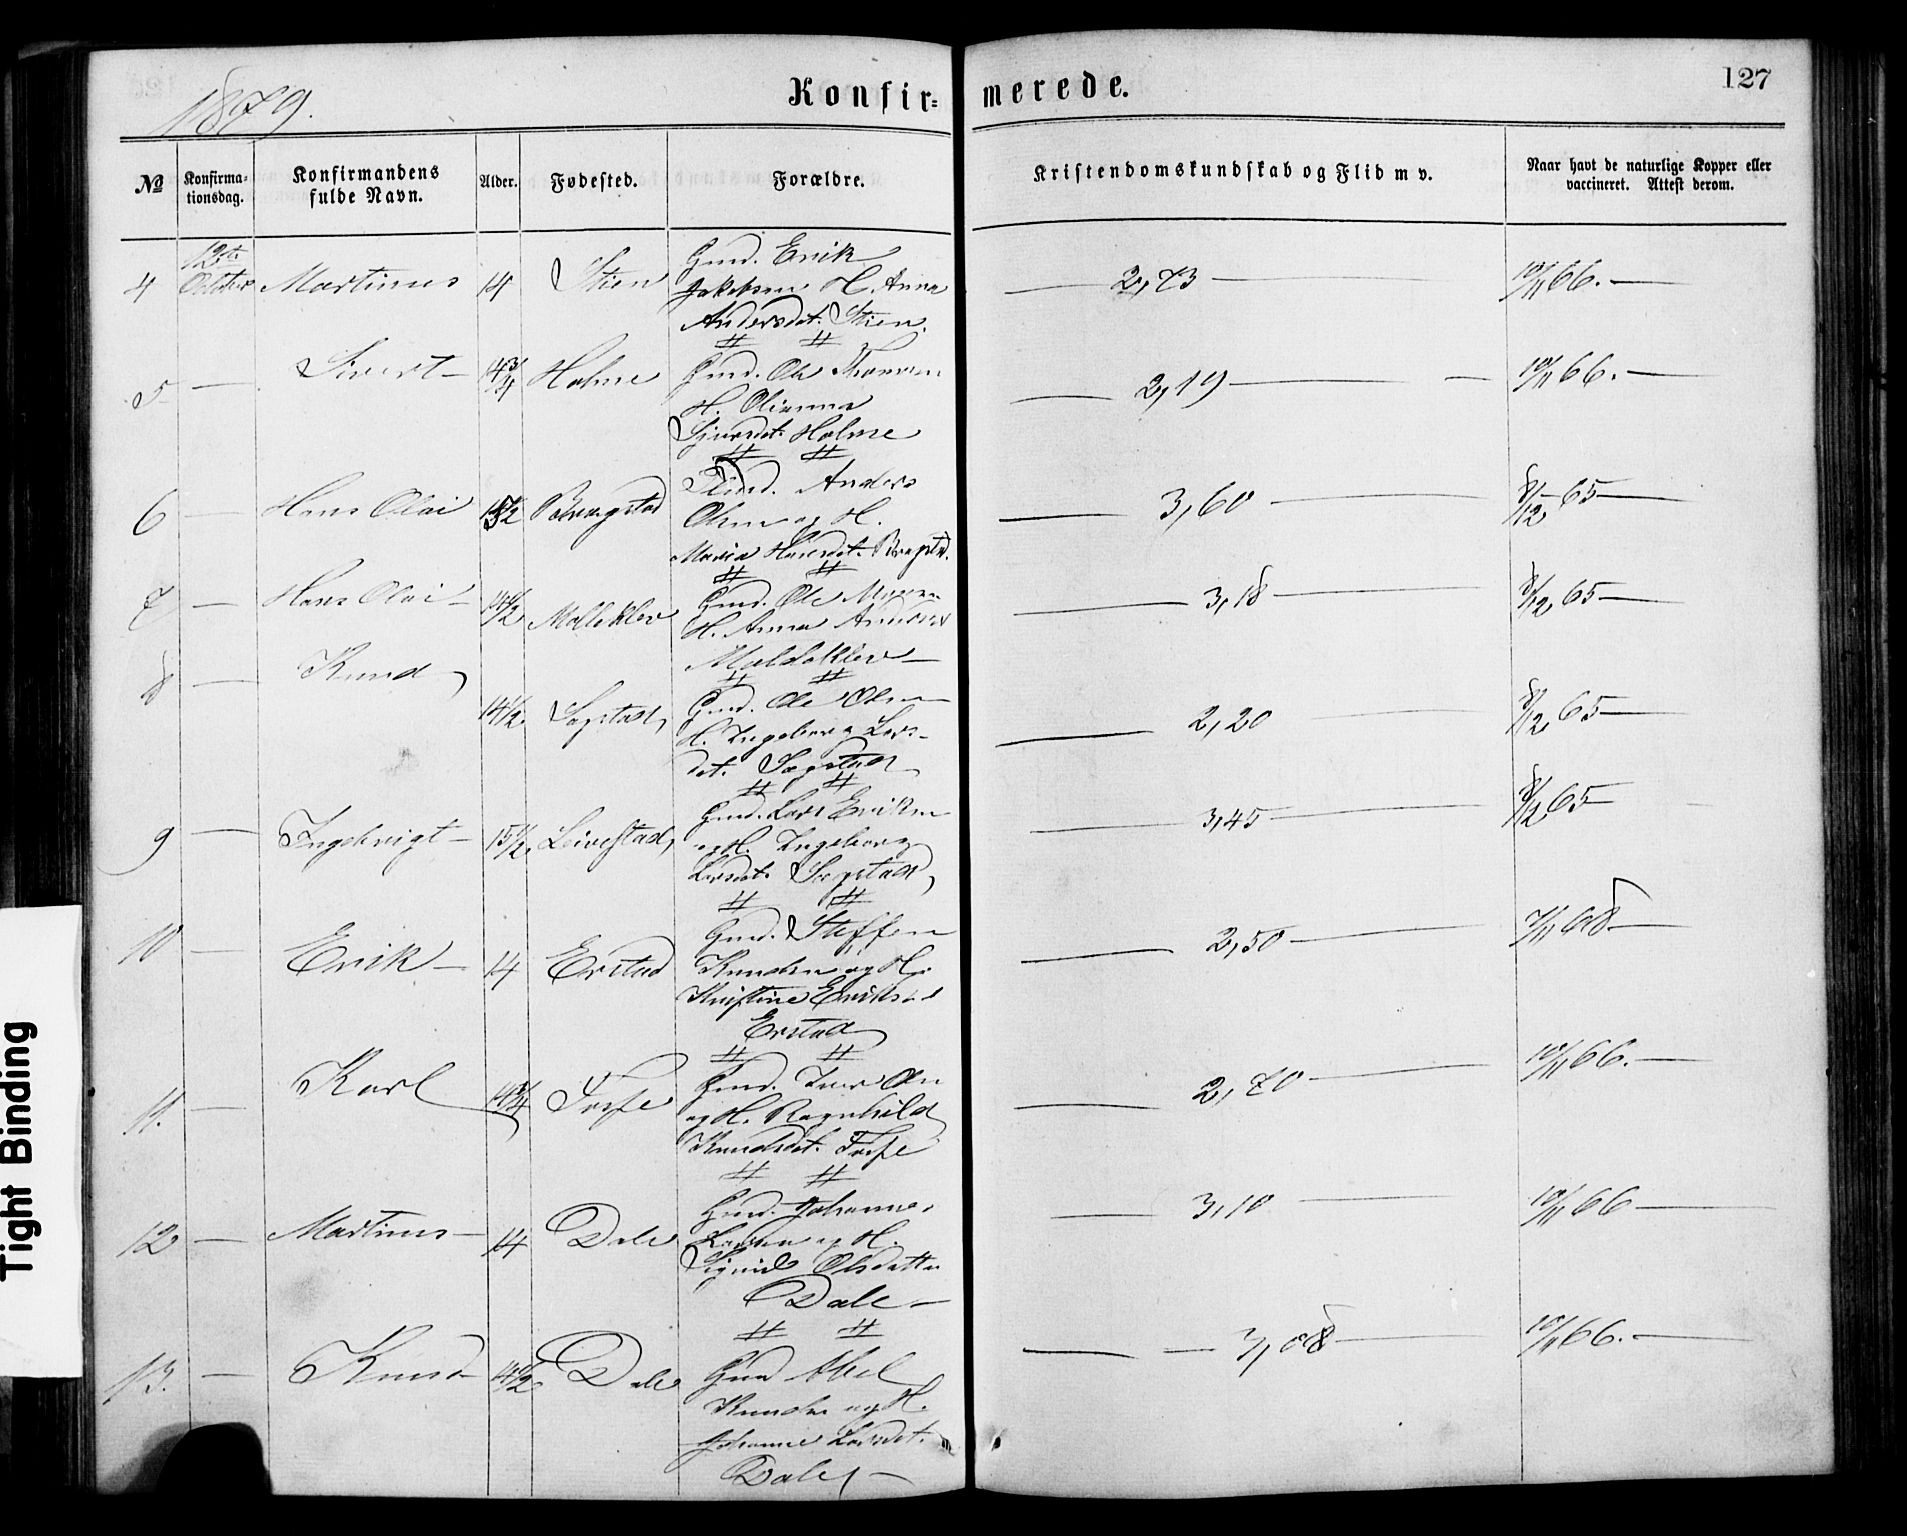 1879.
Konfirmerede.
127
№
Konfirmationsdag.
Konfirmandens fulde Navn.
Alder.
Fødested.
Forældre.
Kristendomskundskab og Flid m v.
Naar havt de naturlige Kopper eller vaccineret. Attest derom.
4 12te October Martinus 14 Stien Gmd. Erik 2,73 10/11 66.
Jakobsen H. Anna
Andersdt. Stien.
5 Sivert 14 3/4 Holme Gmd. Ole Thomsen 2,19 10/11 66.
H. Olianna
Sjursdt. Holme
6 Hans Olai Anders 3,60 8/12 65
Olsen og H.
Maria Hansdt.
7 Hans Olai 14 1/2 Molleklev Gmd. Ole 3,18 8/12 65
H. Anna
8 Knud 14 1/2 Sagstad Gmd. Ole Olsen 2,20 8/12 65
H. Ingeborg Lars-
dt. Sagstad
9 15 1/2 Leivestad Gmd. Lars Eriksen 3,45 8/12 65
og H. Ingeborg
Larsdt. Sagstad
10 Erik 14 Erstad Gmd. Steffen 2,50 7/11 68
Knudsen og H.
Kristine
Erstad
11. Karl 14 3/4 Gmd. Iver 2,70 10/11 66.
og H. Ragnhild
Knudsdt.
12 Martinus 14 Dale Gmd. Johannes 3,10 10/11 66
Larsen og H.
Olsdatter
Dale
13. Knud 14 1/2 Dale Gmd Abel 3,08 10/11 66.
Knudsen og H.
Johanne Larsdt.
Dale
Tight Binding